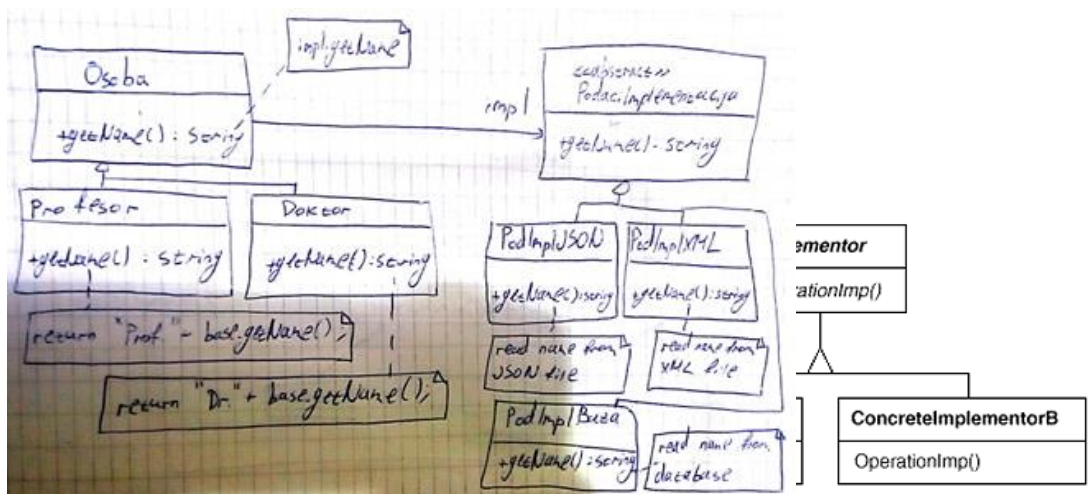 impl.getName
Osoba
+getName() : String
impl
<<abstract>>
PodaciImplementacija
+getName() : String
Profesor
+getName() : String
Doktor
+getName() : String
return "Prof." + base.getName();
return "Dr." + base.getName();
PodImplJSON
+getName() : string
PodImplXML
+getName() : string
read name from
JSON file
read name from
XML file
PodImplBaza
+getName() : string
read name from
database
ementor
erationImp()
ConcreteImplementorB
OperationImp()